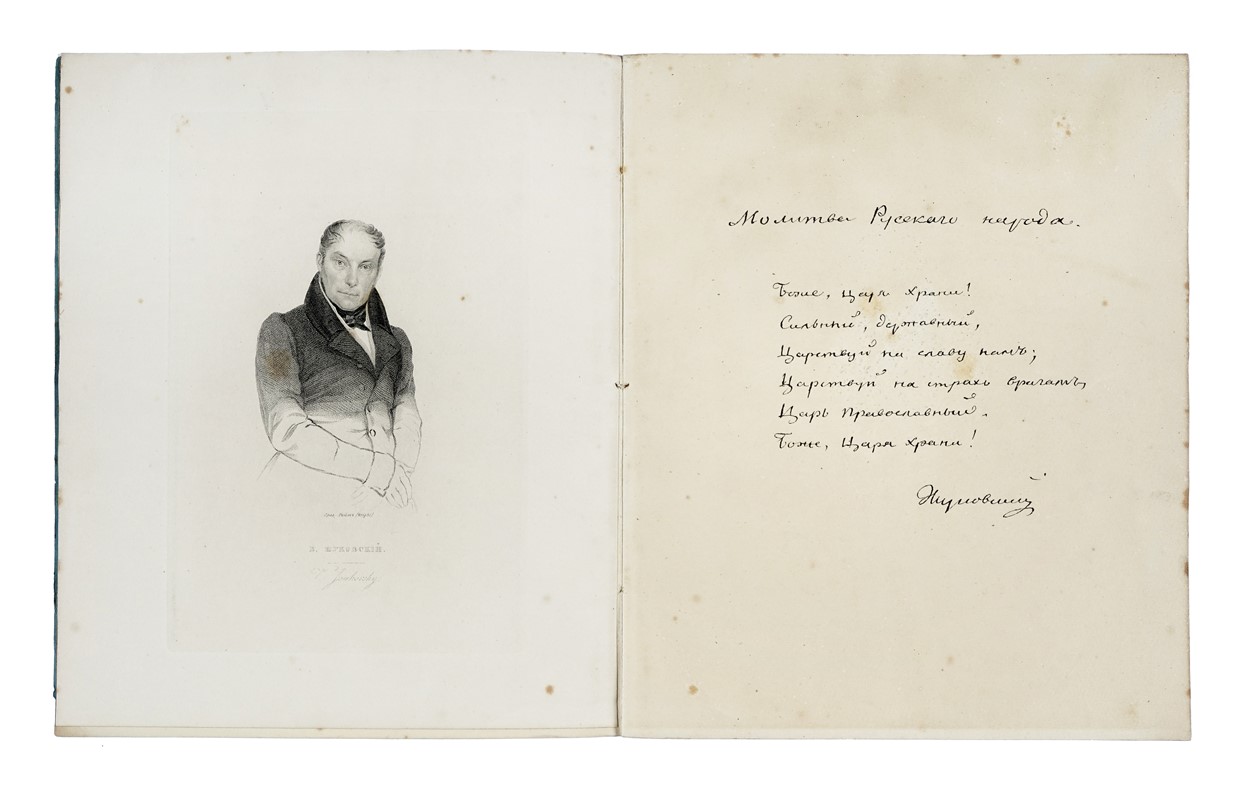 В. ЖУКОВСКІЙ.
Joukovsky
Молитва Русскаго народа.
Боже, Царя храни!
Сильный, державный,
Царствуй на славу намъ;
Царствуй на страхъ врагамъ,
Царь православный.
Боже, Царя храни!
Жуковскій